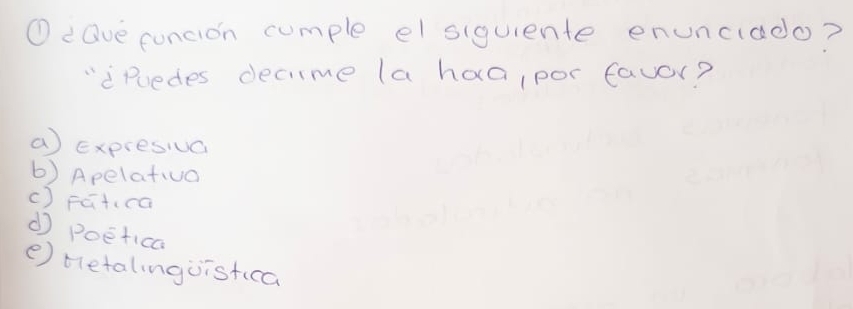 ① ¿Qué función cumple el siguiente enunciado?
"¿Puedes decirme la hora, por favor?
a) Expresiva
b) Apelativa
c) Fática
d) Poética
e) Metalingüística